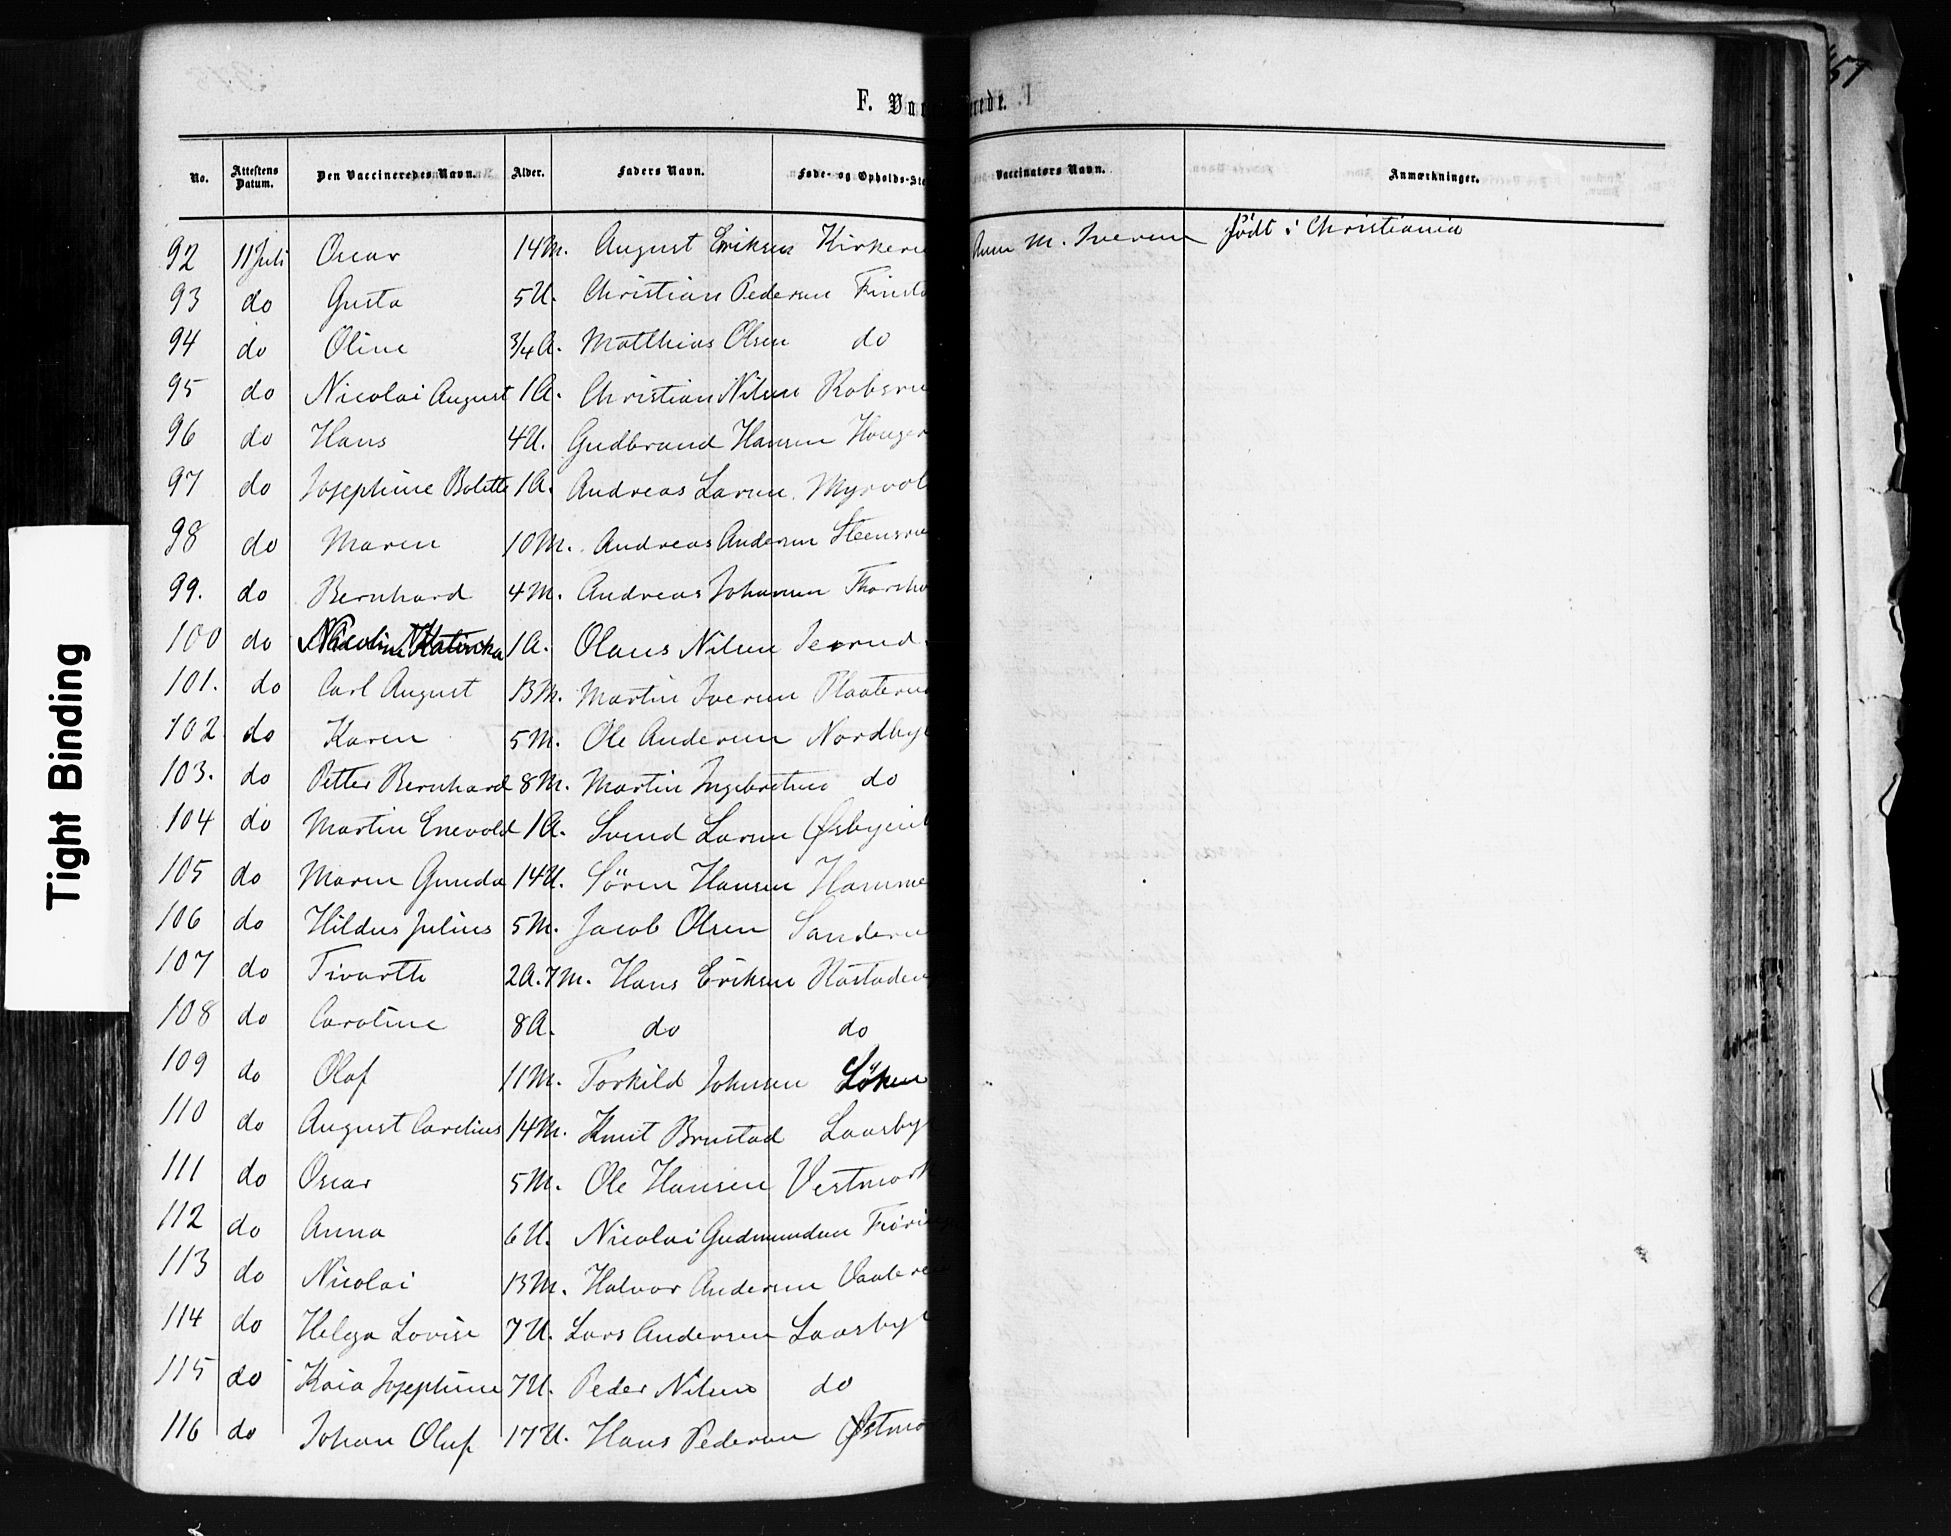 57
F. Vac erede.
No. Attestens Datum. Den Vaccineredes Navn. Alder. Faders Navn. Føde- og Opholds-Ste Vaccinators Navn. Anmærkninger.
92 11 Juli Oscar 14 M. August Eriksen Kirkeru M. Iversen födt i Christiania
93 do Gusta 5 U. Christian Pedersen Finsta
94 do Oline 3/4 A. Matthias Olsen do
95 do Nicolai August 1 A. Christian Nilsen Robsru
96 do Hans 4 U. Gudbrand Hansen Houger
97 do Josephine Bolette 1 A. Andreas Larsen Myrvol
98 do Maren 10 M. Andreas Andersen Steensru
99. do Bernhard 4 M. Andreas Johansen Thorsho
100 do Nicoline Katinka 1 A. Olaus Nilsen
101. do Carl August 13 M. Martin Iversen Plaateru
102 do Karen 5 M. Ole Andersen Nordbye
103. do Petter Bernhard 8 M. Martin Ingebretsen do
104 do Martin Enevold 1 A. Svend Larsen Øsbyeie
105 do Maren Gunda 14 U. Sören Hansen Hamme
106 do Hildus Julius 5 M. Jacob Olsen Sanderu
107 do Tivarthe 2 A. 7 M. Hans Eriksen Rästade
108 do Caroline 8 A. do do
109 do Olaf 11 M. Torkild Johnsen Löken
110 do August Carelius 14 M. Knut Brustad Laasby
111 do Oscar 5 M. Ole Hansen Vestmork
112 do Anna 6 U. Nicolai Gudmundsen
113 do Nicolai 13 M. Halvor Andersen
114 do Helga Lovise 7 U. Lars Andersen Laasbye
115 do Kaia Josephine 7 U. Peder Nilsen do
116 do Johan Oluf 17 U. Hans Pedersen Østmo
Tight Binding